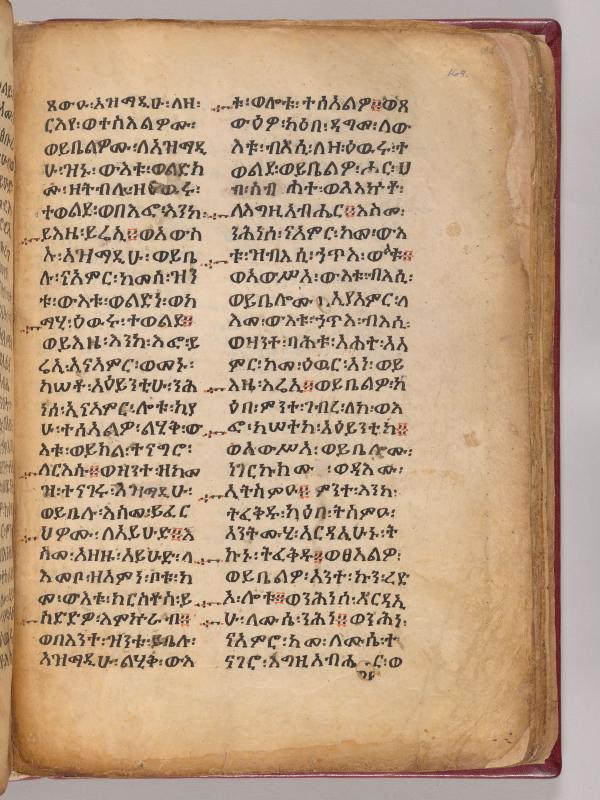 168.
ጸውዑ፡አዝማዲሁ፡ለዘ፡
ርእየ፡ወተስእልዎሙ፡
ወይቤልዎሙ፡ለአዝማዲ
ሁ፡ዝኑ፡ውእቱ፡ወልድከ
ሙ፡ዘትብሉ፡ዕዉሩ፡
ተወልደ፡ወበእፎ፡እንከ፡
ይእዜ፡ይሬኢ፨ወአውስ
ኡ፡አዝማዲሁ፡ወይቤ
ሉ፡ናአምር፡ከመሰ፡ዝን
ቱ፡ውእቱ፡ወልድነ፡ወከ
ማሂ፡ዕዉሩ፡ተወልደ፨
ወይእዜ፡እንከ፡እፎ፡ይ
ሬኢ፡ኢናአምር፡ወመኑ፡
ከሠቶ፡አዕይንቲሁ፡ንሕ
ነሰ፡ኢናአምር፡ሎቱ፡ኪያ
ሁ፡ተሰአልዎ፡ልሂቅ፡ው
እቱ፡ወይክል፡ተናግሮ፡
ለርእሱ፨ወዘንተ፡ዘከመ
ዝ፡ተናገሩ፡አዝማዲሁ፡
ወይቤሉ፡እስመ፡ይፈር
ህዎሙ፡ለአይሁድ፨እ
ስመ፡አዘዙ፡አይሁድ፡ለ
እመቦ፡ዘአምነ፡ቦቱ፡ከ
መ፡ውእቱ፡ክርስቶስ፡ይ
ስድድዎ፡እምኵራብ፨
ወበእንተ፡ዝንቱ፡ይቤሉ፡
አዝማዲሁ፡ልሂቅ፡ውእ
ቱ፡ወሎቱ፡ተሰአልዎ፨ወጸ
ውዕዎ፡ካዕበ፡ዳግመ፡ለው
እቱ፡ብእሲ፡ለዘ፡ዕዉሩ፡ተ
ወልደ፡ወይቤልዎ፡ሖር፡ሀ
ብ፡ስብሐት፡ወአአኵቶ፡
ለእግዚአብሔር፨እስመ፡
ንሕነሰ፡ናአምር፡ከመ፡ውእ
ቱ፡ዝብእሲ፡ኃጥእ፡ውእቱ፨
ወአውሥአ፡ውእቱ፡ብእሲ፡
ወይቤሎሙ፡ኢያአምር፡ለ
እመ፡ውእቱ፡ኃጥእ፡ብእሲ፡
ወዘንተ፡ባሕቱ፡አሐተ፡አአ
ምር፡ከመ፡ዕዉር፡አነ፡ወይ
እዜ፡እሬኢ፨ወይቤልዎ፡ካ
ዕበ፡ምንተ፡ገብረ፡ለከ፡ወእ
ፎ፡ከሠተከ፡አዕይንቲከ፨
ወአውሥአ፡ወይቤሎሙ፡
ነገርኩክሙ፡ወዳእሙ፡
ኢትሰምዑ፨ምንተ፡እንከ፡
ትፈቅዱ፡ካዕበ፡ትስምዑ፡
አንትሙሂ፡አርዳኢሁኑ፡ት
ኩኑ፡ትፈቅዱ፨ወፀአልዎ፡
ወይቤልዎ፡አንተ፡ኩን፡ረድ
አ፡ሎቱ፨ወንሕነሰ፡አርዳኢ
ሁ፡ለሙሴ፡ንሕነ፨ወንሕነ፡
ናአምሮ፡ከመ፡ለሙሴ፡ተ
ናገሮ፡እግዚአብሔር፡ወ